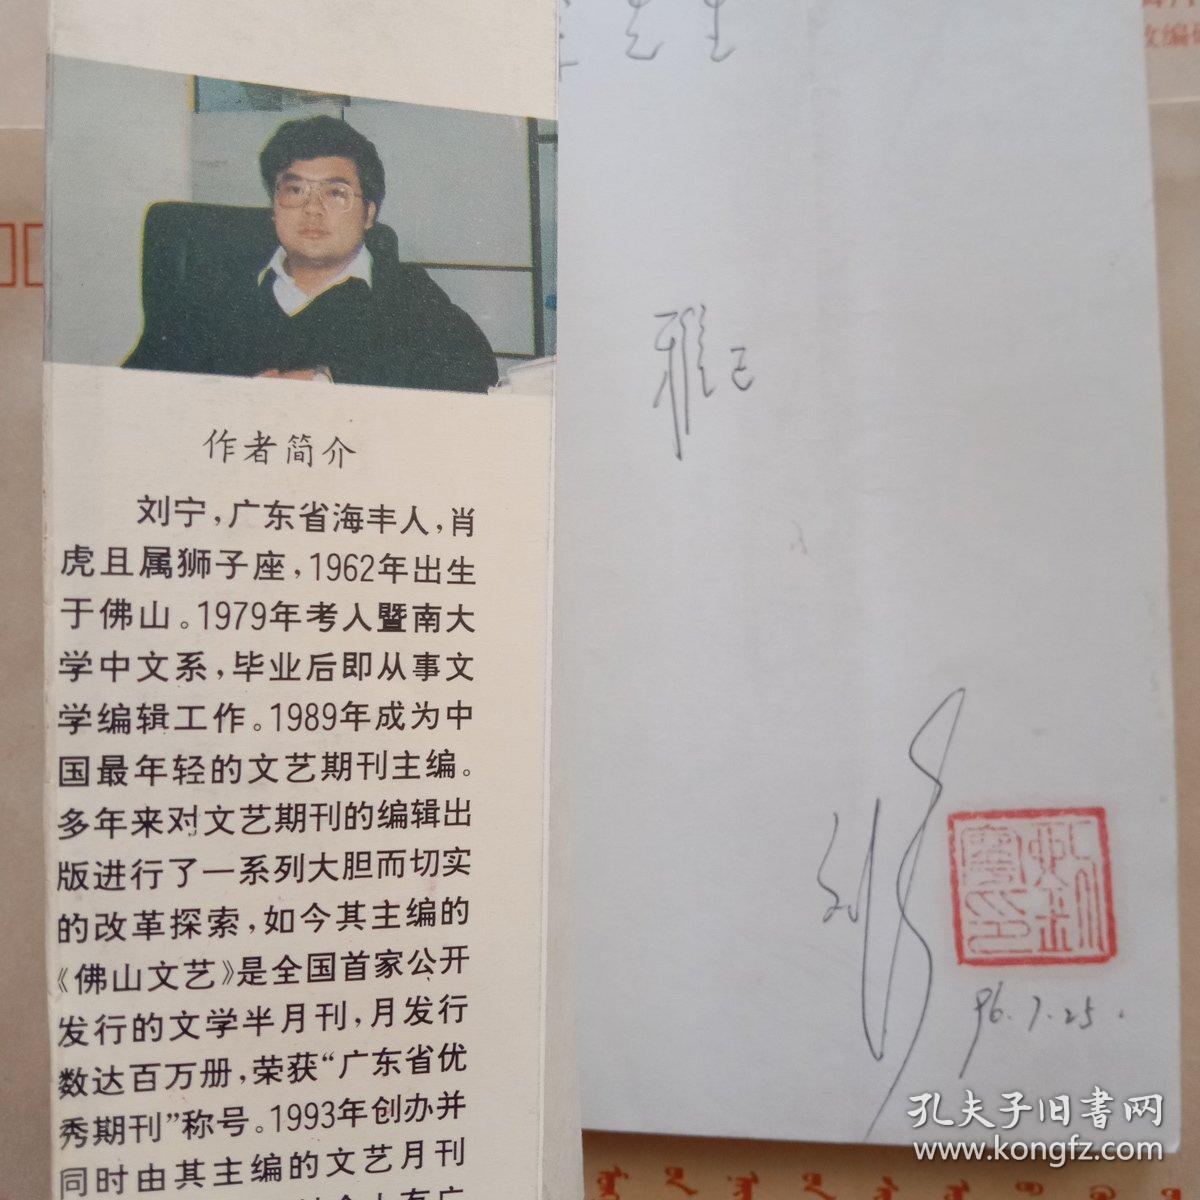 作者简介
刘宁，广东省海丰人，肖
虎且属狮子座，1962年出生
于佛山。1979年考入暨南大
学中文系，毕业后即从事文
学编辑工作。1989年成为中
国最年轻的文艺期刊主编。
多年来对文艺期刊的编辑出
版进行了一系列大胆而切实
的改革探索，如今其主编的
《佛山文艺》是全国首家公开
发行的文学半月刊，月发行
数达百万册，荣获“广东省优
秀期刊”称号。1993年创办并
同时由其主编的文艺月刊
先生
雅正
刘宁
刘宁之印
96.7.25.
孔夫子旧书网
www.kongfz.com